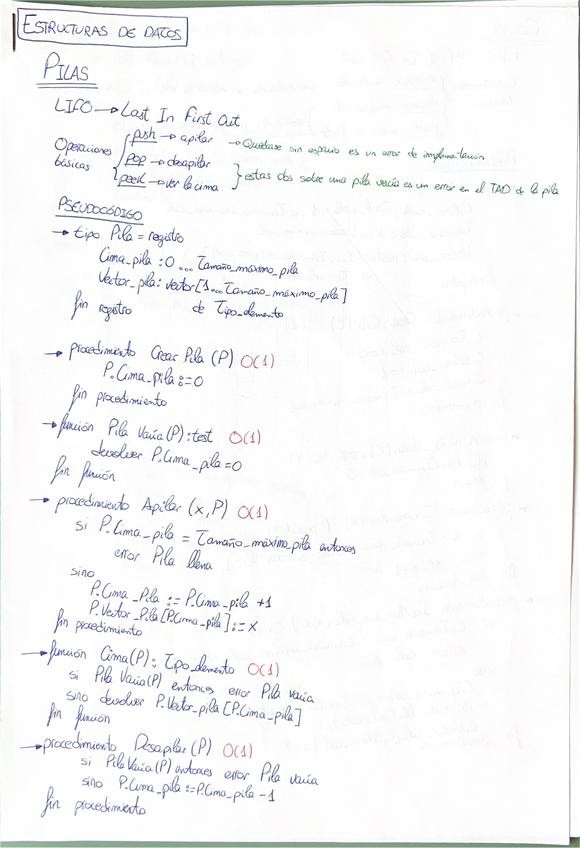 ESTRUCTURAS DE DATOS
PILAS
LIFO → Last In First Out
Operaciones básicas
push → apilar → Quedarse sin espacio es un error de implementación
pop → desapilar
peek → ver la cima } estas dos sobre una pila vacía es un error en el TAD de la pila
PSEUDOCÓDIGO
→ tipo Pila = registro
Cima_pila : 0 ... Tamaño_máximo_pila
Vector_pila : vector [1...Tamaño_máximo_pila]
fin registro de Tipo_elemento
→ procedimiento Crear Pila (P) O(1)
P.Cima_pila := 0
fin procedimiento
→ función Pila Vacía (P) : test O(1)
devolver P.Cima_pila = 0
fin función
→ procedimiento Apilar (x, P) O(1)
si P.Cima_pila = Tamaño_máximo_pila entonces
error Pila llena
sino
P.Cima_Pila := P.Cima_pila + 1
P.Vector_Pila [P.Cima_pila] := x
fin procedimiento
→ función Cima (P) : Tipo_elemento O(1)
si Pila Vacía (P) entonces error Pila vacía
sino devolver P.Vector_pila [P.Cima_pila]
fin función
→ procedimiento Desapilar (P) O(1)
si Pila Vacía (P) entonces error Pila vacía
sino P.Cima_pila := P.Cima_pila - 1
fin procedimiento